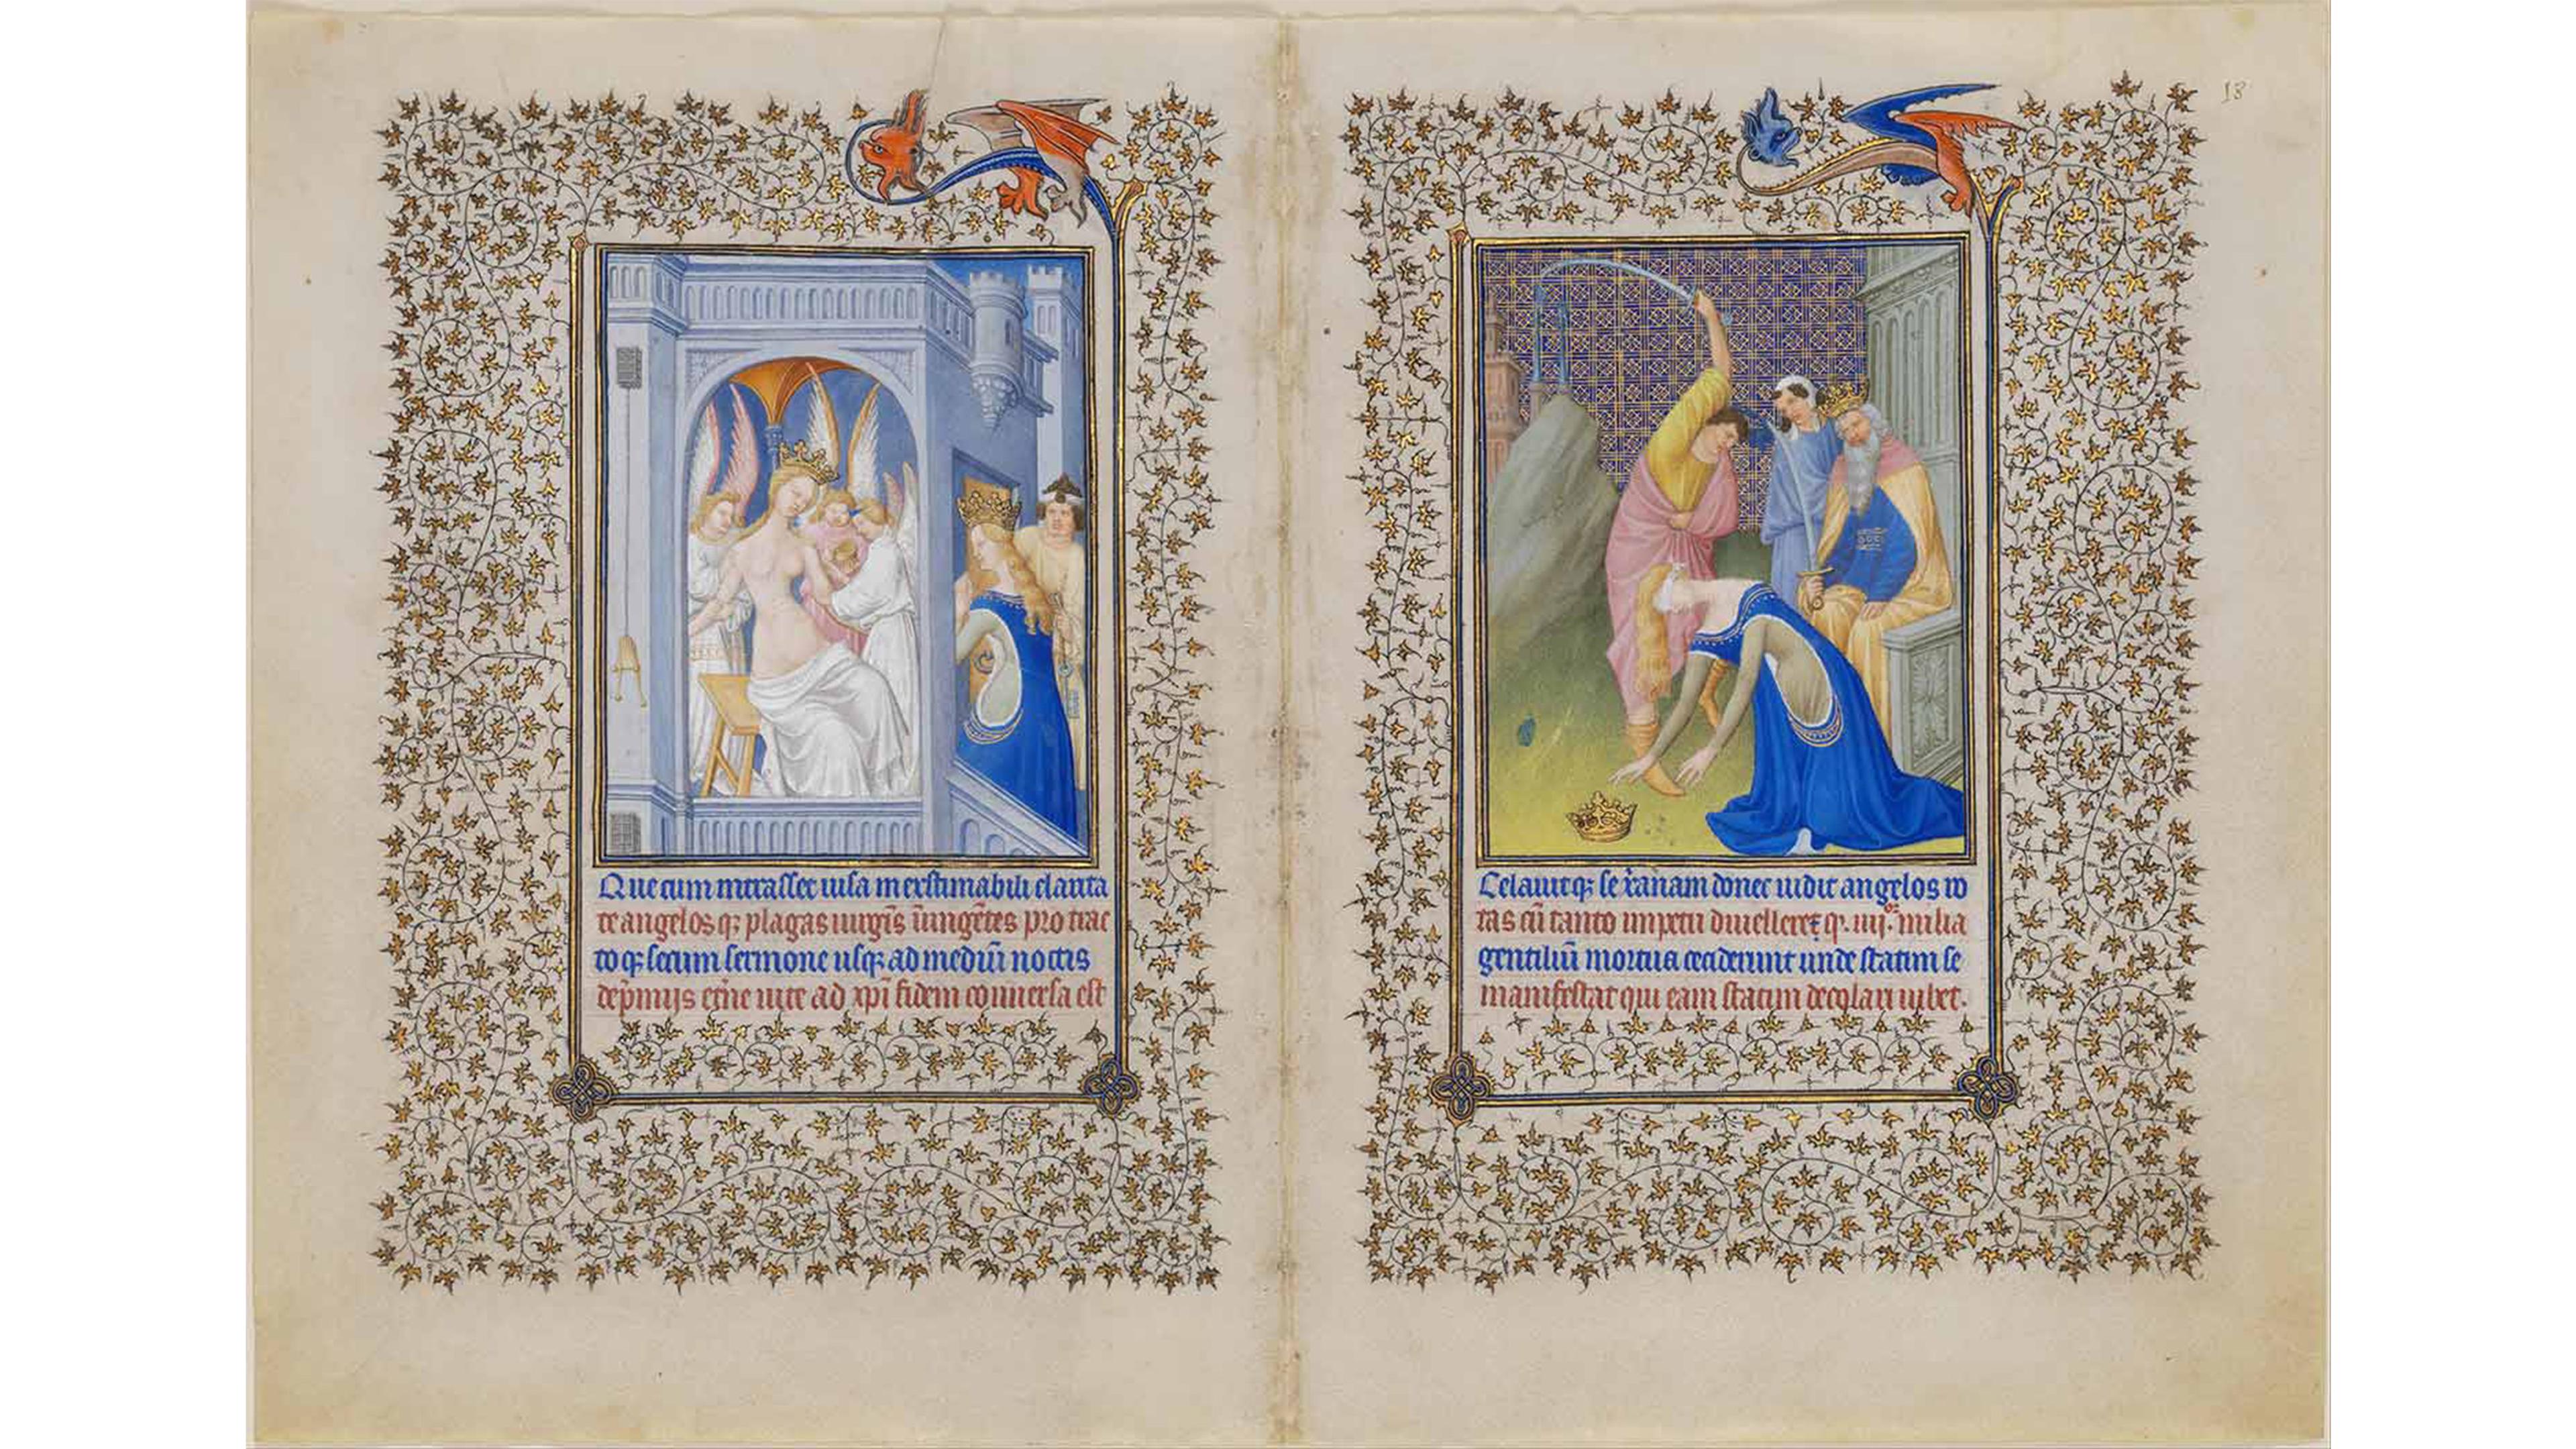 Que cum intrasset uisa inextimabili clarita
te angelos q; plagas uirgīs īungētes pro trac
to q; secum sermone usq; ad mediū noctis
de p̄mijs et̄ne uite ad xp̄i fidem conuersa est
18
Celauitq; se xanam donec uidit angelos ro
tas cū tanto impetu diuelleret q. iiij.or milia
gentiliū mortua ceciderunt unde statim se
manifestat qui eam statim decolari iubet.